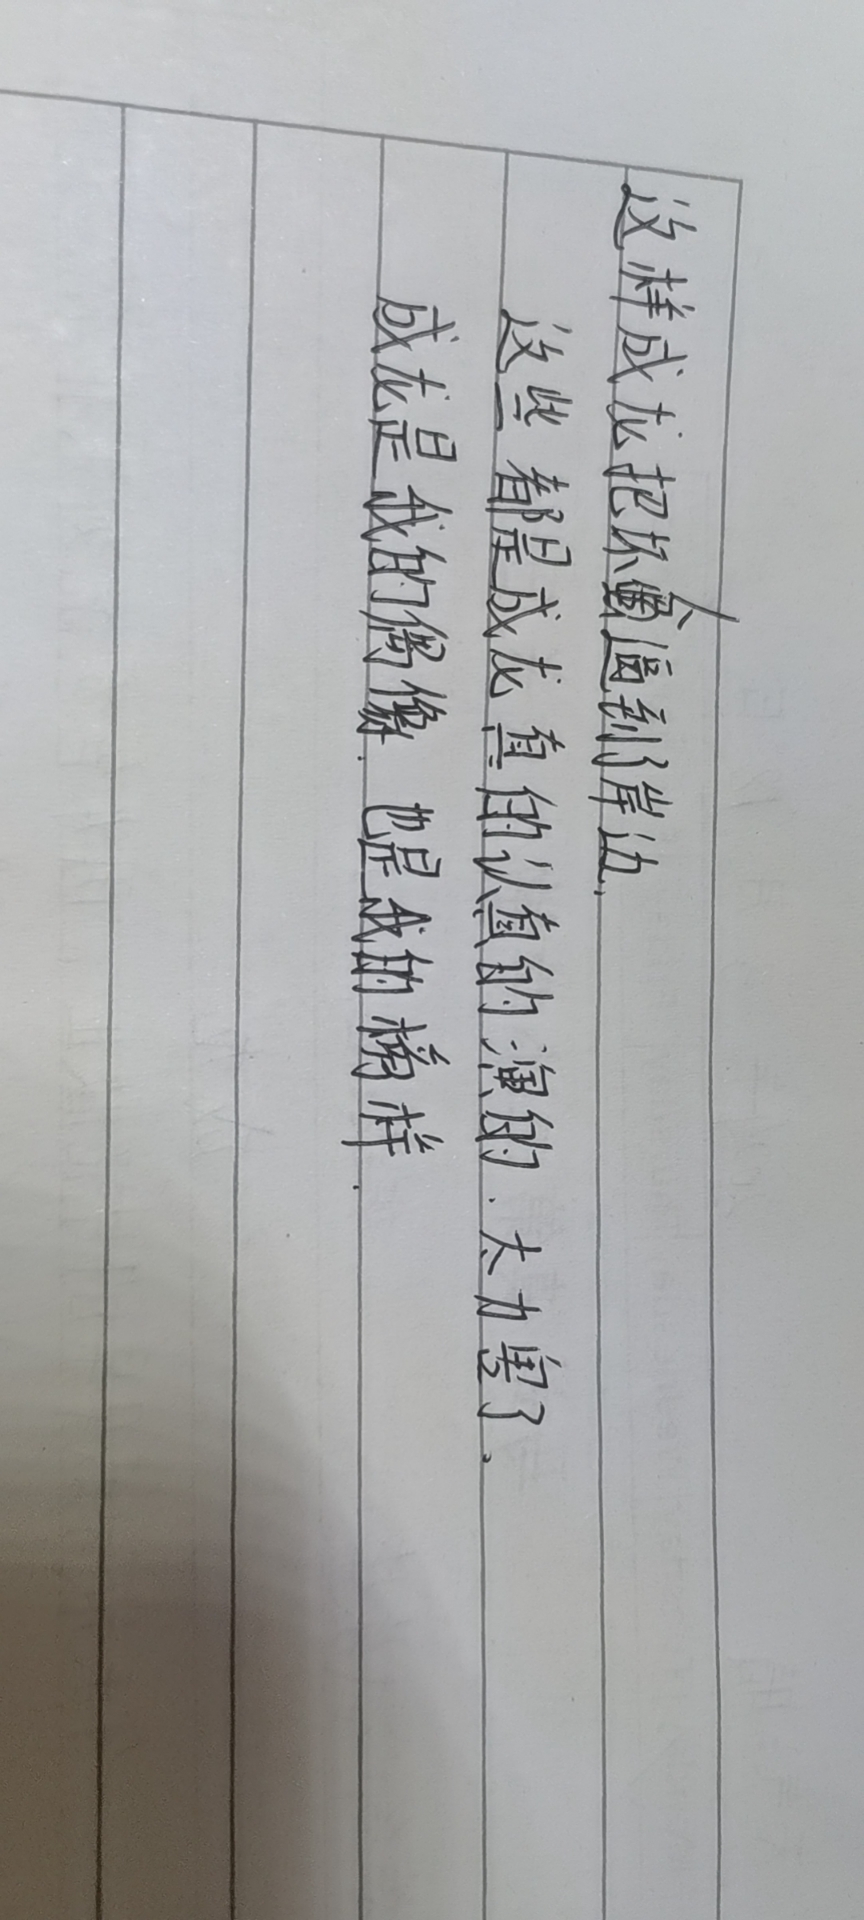 这样成龙把坏人逼到了岸边.
这些都是成龙真的认真的演的.太力害了.
成龙是我的偶像.也是我的榜样.